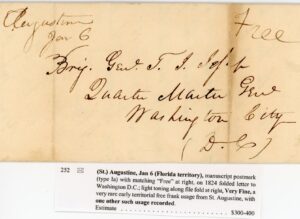 Augustine
Jan 6
Free
Brig. Genl. T. S. Jesup
Quarter Master Genl
Washington City
(D. C)
252 (St.) Augustine, Jan 6 (Florida territory), manuscript postmark
(type Ia) with matching "Free" at right, on 1824 folded letter to
Washington D.C.; light toning along file fold at right, Very Fine, a
very rare early territorial free frank usage from St. Augustine, with
one other such usage recorded.
Estimate $300-400